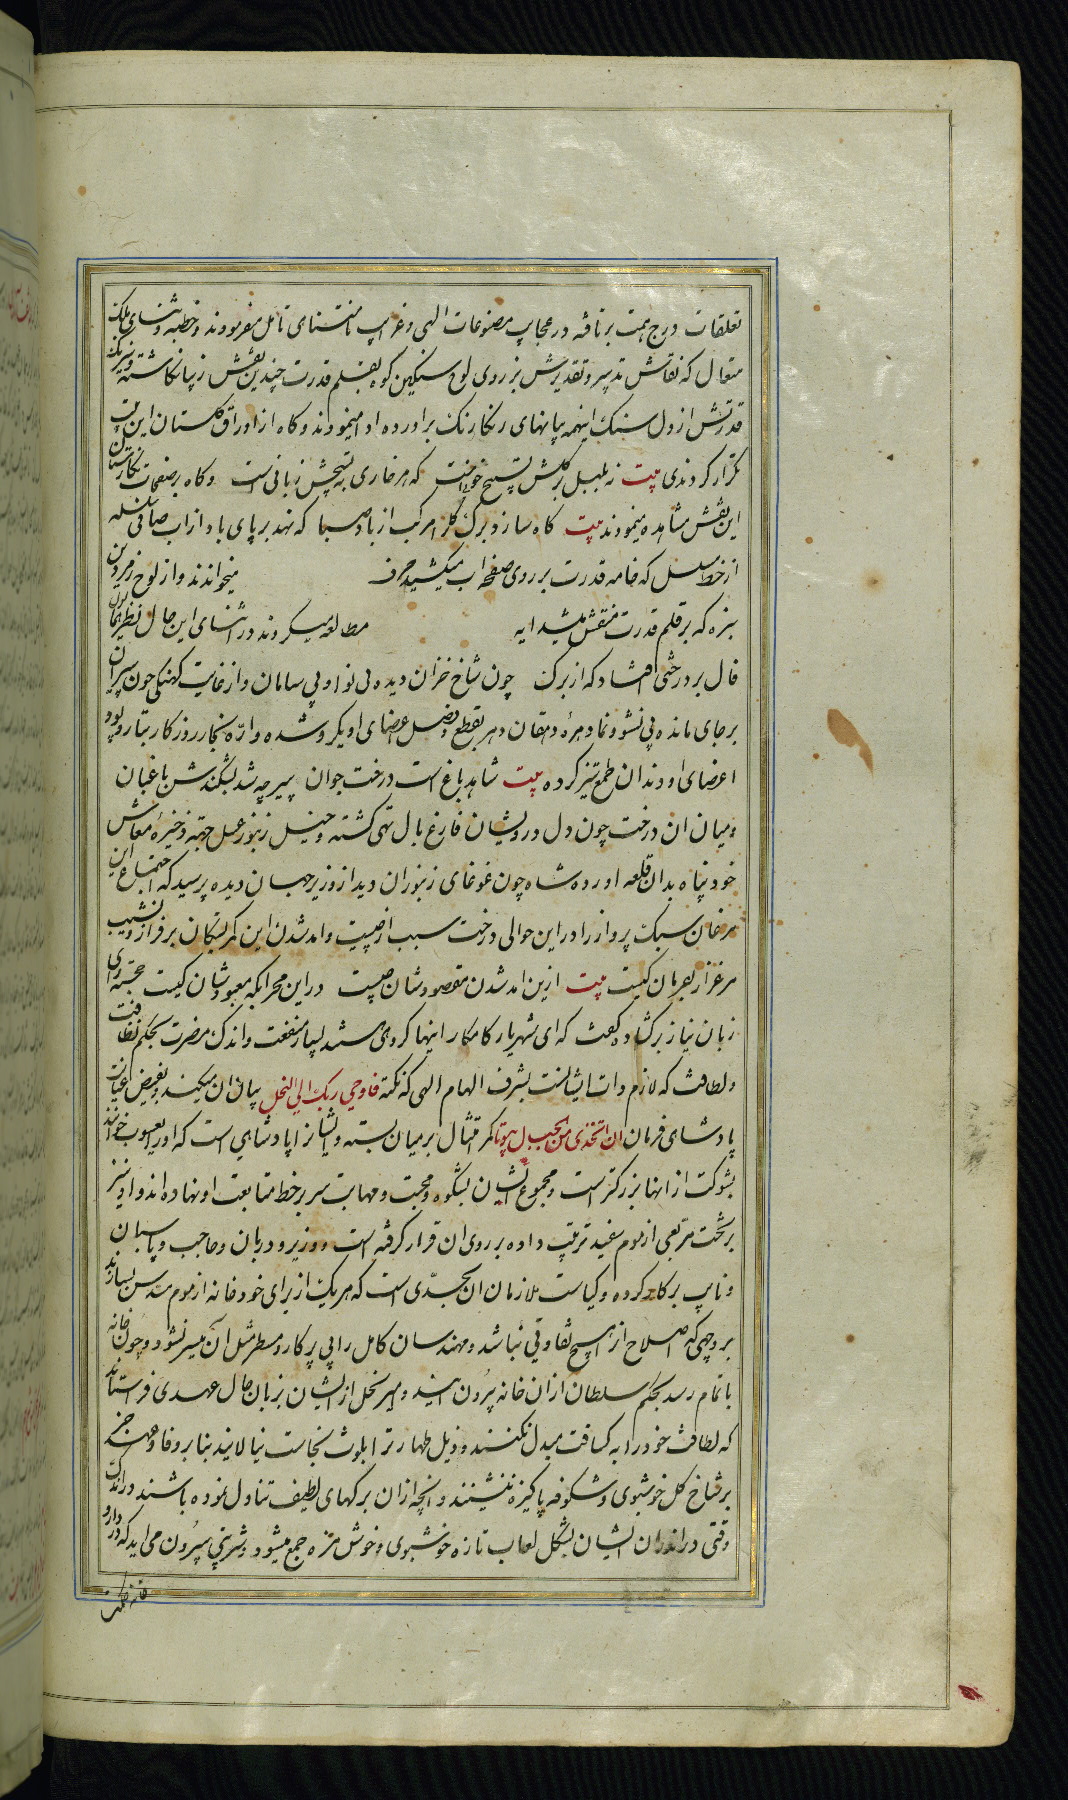 تعلقات درج همت برتافه در عجایب مصنوعات الهی و غرایب نامتناهی تامل میفرمودند و خطبه و ثنای ملک
متعال که نقاش تدبیر و تقدیرش بر روی لوح سنگین کوه بقلم قدرت چندین نقش زیبا نگاشته و نیرنگ
قدرتش از دل سنک اینهمه کیاههای رنکارنک براورده ادا مینمودند و کاه از اوراق کلستان این بیت
تکرار کردندی بیت نه بلبل بر کلش تسبیح خوانیست که هر خاری به تسبیحش زبانی است و کاه بر صفحات نکارستان
این نقش مشاهده مینمودند بیت کاه سازد برک کل را مرکب از باد صبا که نهد بر پای باد از اب صافی سلسله
از خط مسلسل که خامه قدرت بر روی صفحه اب میکشید حرف میخواندند و از لوح زمردین
سبزه که بر قلم قدرت منقش میشد ایه مطالعه میکردند در اثنای این حال نظر همایون
فال بر درختی افتاد که از برک چون شاخ خزان دیده بی نوا و بی سامان و از غایت کهنکی چون پیران
بر جای مانده بی نشو و نما و هره دهقان دهر بقطع و فصل اعضای او یکرو شده و اره نجار روزکار بتار و پود
اعضای او دندان طمع تیز کرده بیت شاهد باغ است درخت جوان پیر چو شد بشکندش باغبان
و میان ان درخت چون دل درویشان فارغ بال تهی کشته و خیل زنبور عسل جهة ذخیره معاش
خود پناه بدان قلعه اورده شاه چون غوغای زنبوران دید از وزیر جهان دیده پرسید که اجتماع این
مرغان سبک پرواز را در این حوالی درخت سبب از چیست و امد شدن این کمر بستکان بر فراز و نشیب
مرغزار بفرمان کیست بیت ازین امد شدن مقصودشان چیست در این محرابکه معبودشان کیست خجسته رای
زبان نیاز برکشاد و کفت که ای شهریار کامکار اینها کروهی هستند بسیار منفعت و اندک مضرت بحکم نظافت
و لطافت که لازم ذات ایشانست بشرف الهام الهی که نکته فاوحی ربک الی النحل بیان ان میکند و بفیض عنایت
پادشاهی فرمان ان اتخذی من الجبال بیوتا کمر امتثال بر میان بسته و ایشانرا پادشاهی است که اورا یعسوب خوانند
بشوکت از انها بزرکتر است و مجموع ایشان بشکوه و محبت و مهابت سر بر خط متابعت او نهاده اند و او نیز
بر تخت مربعی از موم سفید ترتیب داده بر روی ان قرار کرفته است و وزیر و دربان و حاجب و پاسبان
و نایب بر کار کرده و کیاست ملازمان ان بحدی است که هر یک از برای خود خانه از موم مسدس بسازند
بر وجهی که اضلاع از هیچ تفاوتی نباشد و مهندسان کامل را بی پرکار و مسطر مثل آن میسر نشود و چون خانه
باتمام رسد بحکم سلطان ازان خانه بیرون ایند و امیر نحل از ایشان بزبان حال عهدی فراستاند
که لطافت خود را به کثافت مبدل نکنند و ذیل طهارت را بلوث نجاست نیالایند بنابر وفا و عهد جز
بر شاخ کل خوشبوی و شکوفه پاکیزه ننشینند و انچه ازان برکهای لطیف تناول نموده باشند در اندک
وقتی در اندرون ایشان بشکل لعاب تازه خوشبوی و خوش مزه جمع میشود و شربتی بیرون می اید که در دارو
خانه حکمت